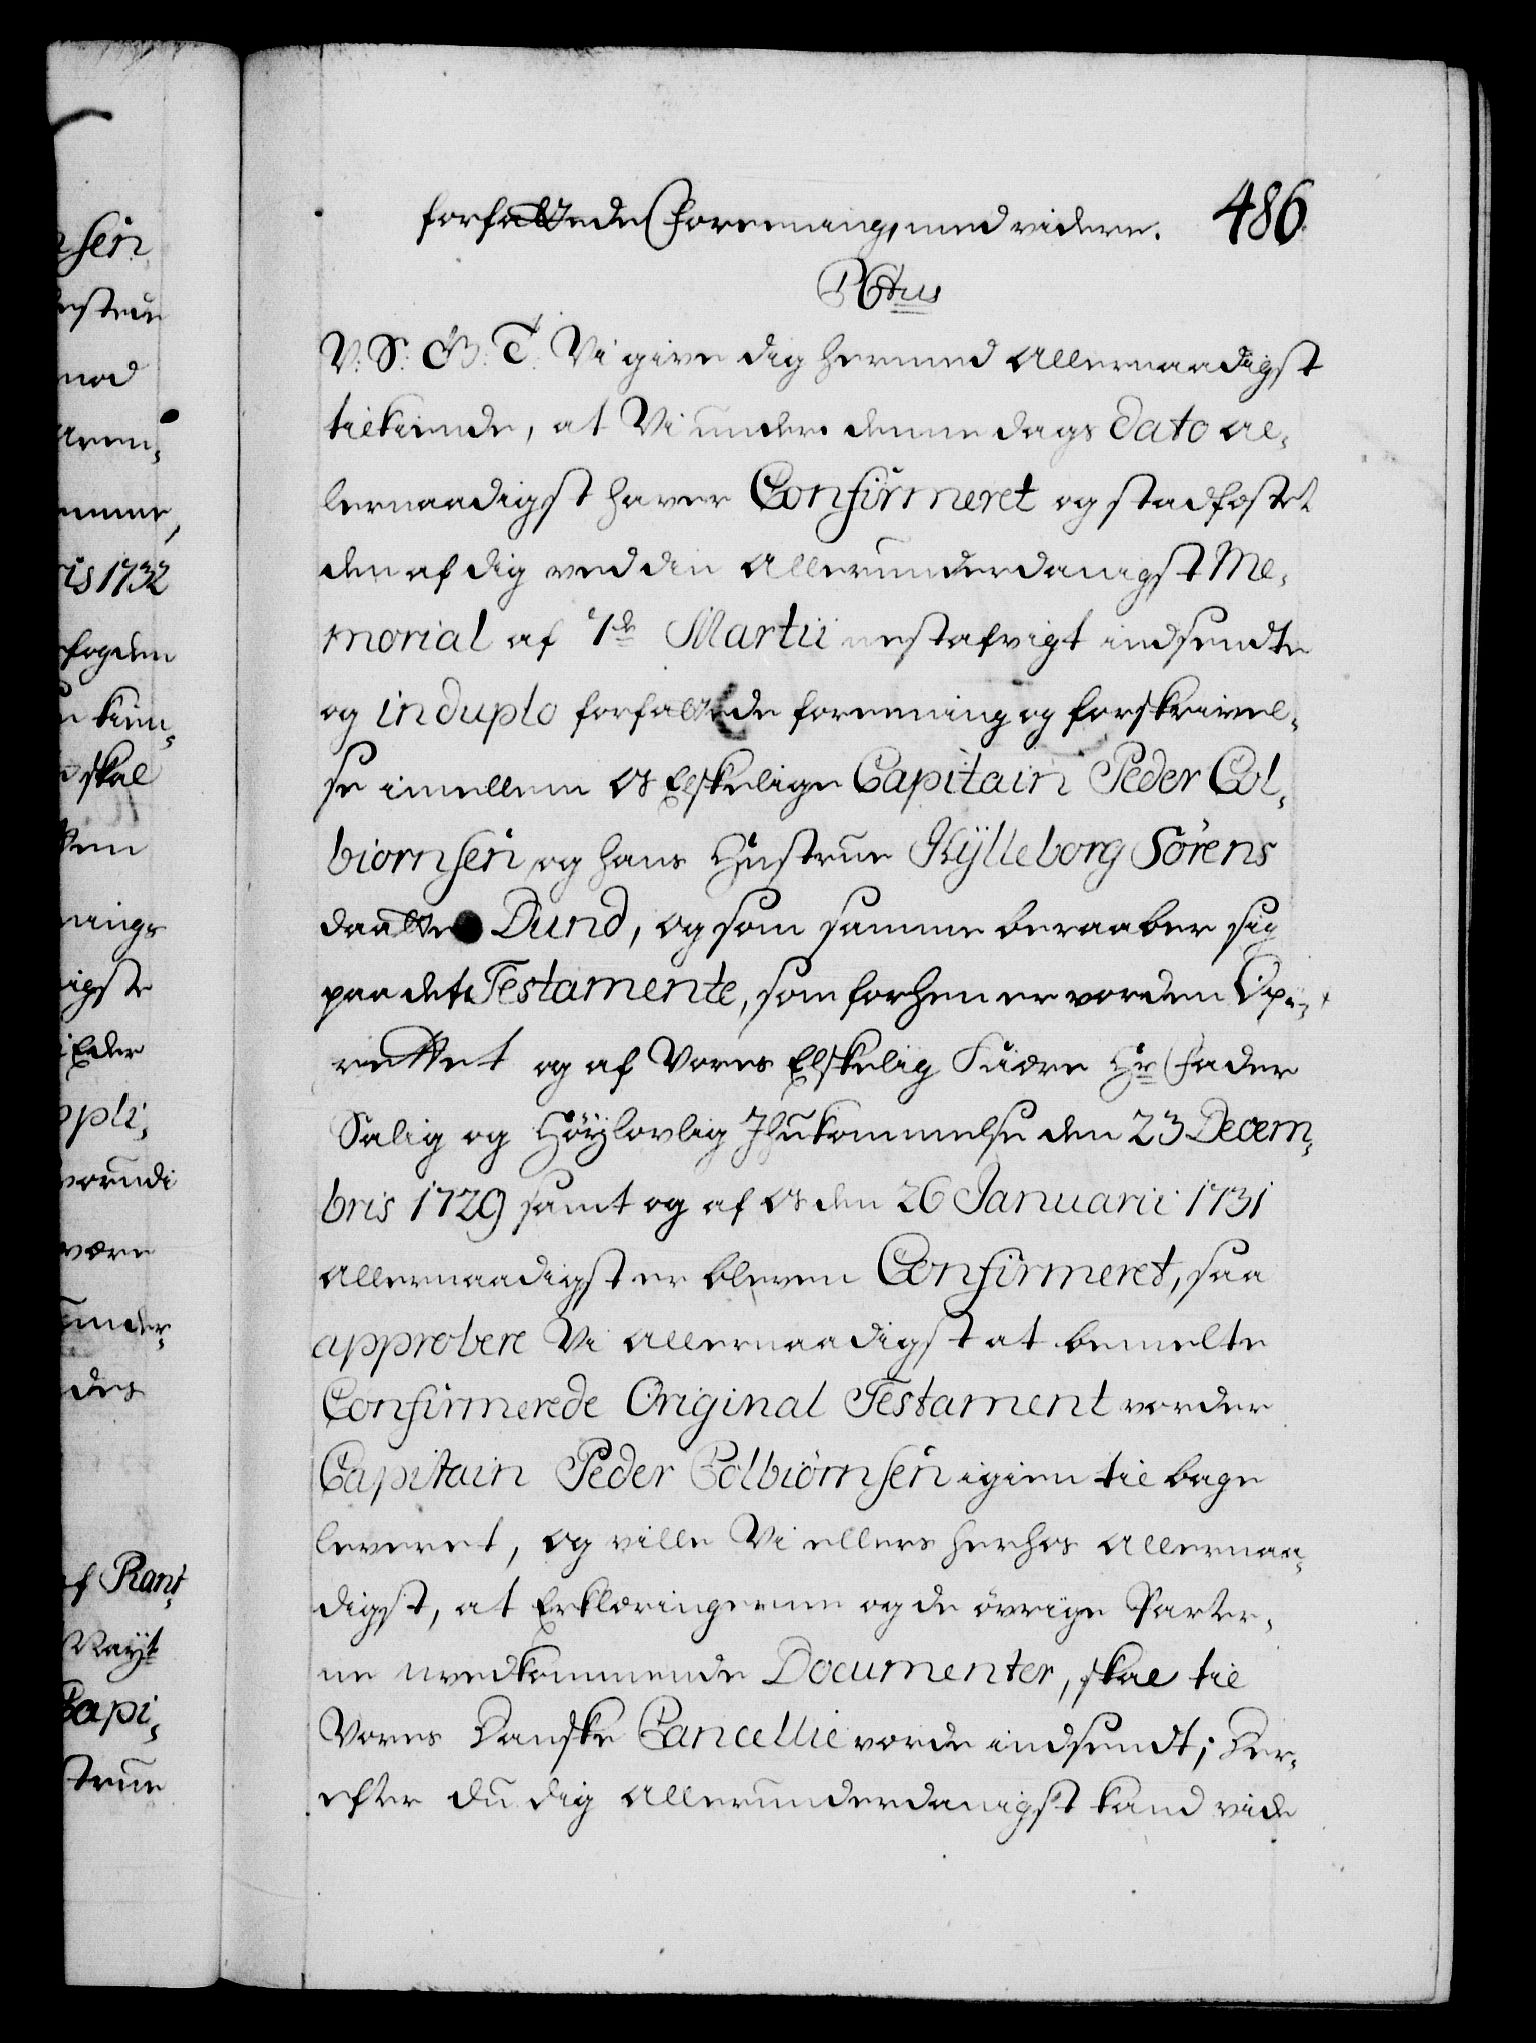 forfattede Foreening, med videre. 486.
PCtus
V: S: G: B: T: Vi give dig hermed Allernaadigst
tilkiende, at Vi under denne dags dato al-
lernaadigst haver Confirmeret og stadfæstet
den af dig ved din Allerunderdanigst Me-
morial af 7de Martii nestafvigt indsendte
og in duplo forfattede foreening og forskrivel-
se imellem Os Elskelige Capitain Peder Col-
biornsen og hans Hustrue Kylleborg Sörens
daatter Dund, og som samme beraaber sig
paa det Testamente, som forhen er vorden Op-
rettet og af Vores Elskelig Kiære Hr Fader
Salig og Höylovlig Ihukommelse den 23 Decem-
bris 1729 samt og af Os den 26 Januarii 1731
Allernaadigst er bleven Confirmeret, saa
approbere Vi Allernaadigst at bemelte
Confirmerede Original Testament vorder
Capitain Peder Colbiörnsen igien tilbage
leveret, og ville Vi ellers herhos Allernaa-
digst, at Erklæringerne og de övrige Parter-
ne vedkommende Documenter, skal til
Vores Danske Cancellie vorde indsendt; Der-
efter du dig Allerunderdanigst kand vide
nsen
mod
ris 1732
skal
Eder
være
under-
des
af Rant-
Mayt
Capi-
strue